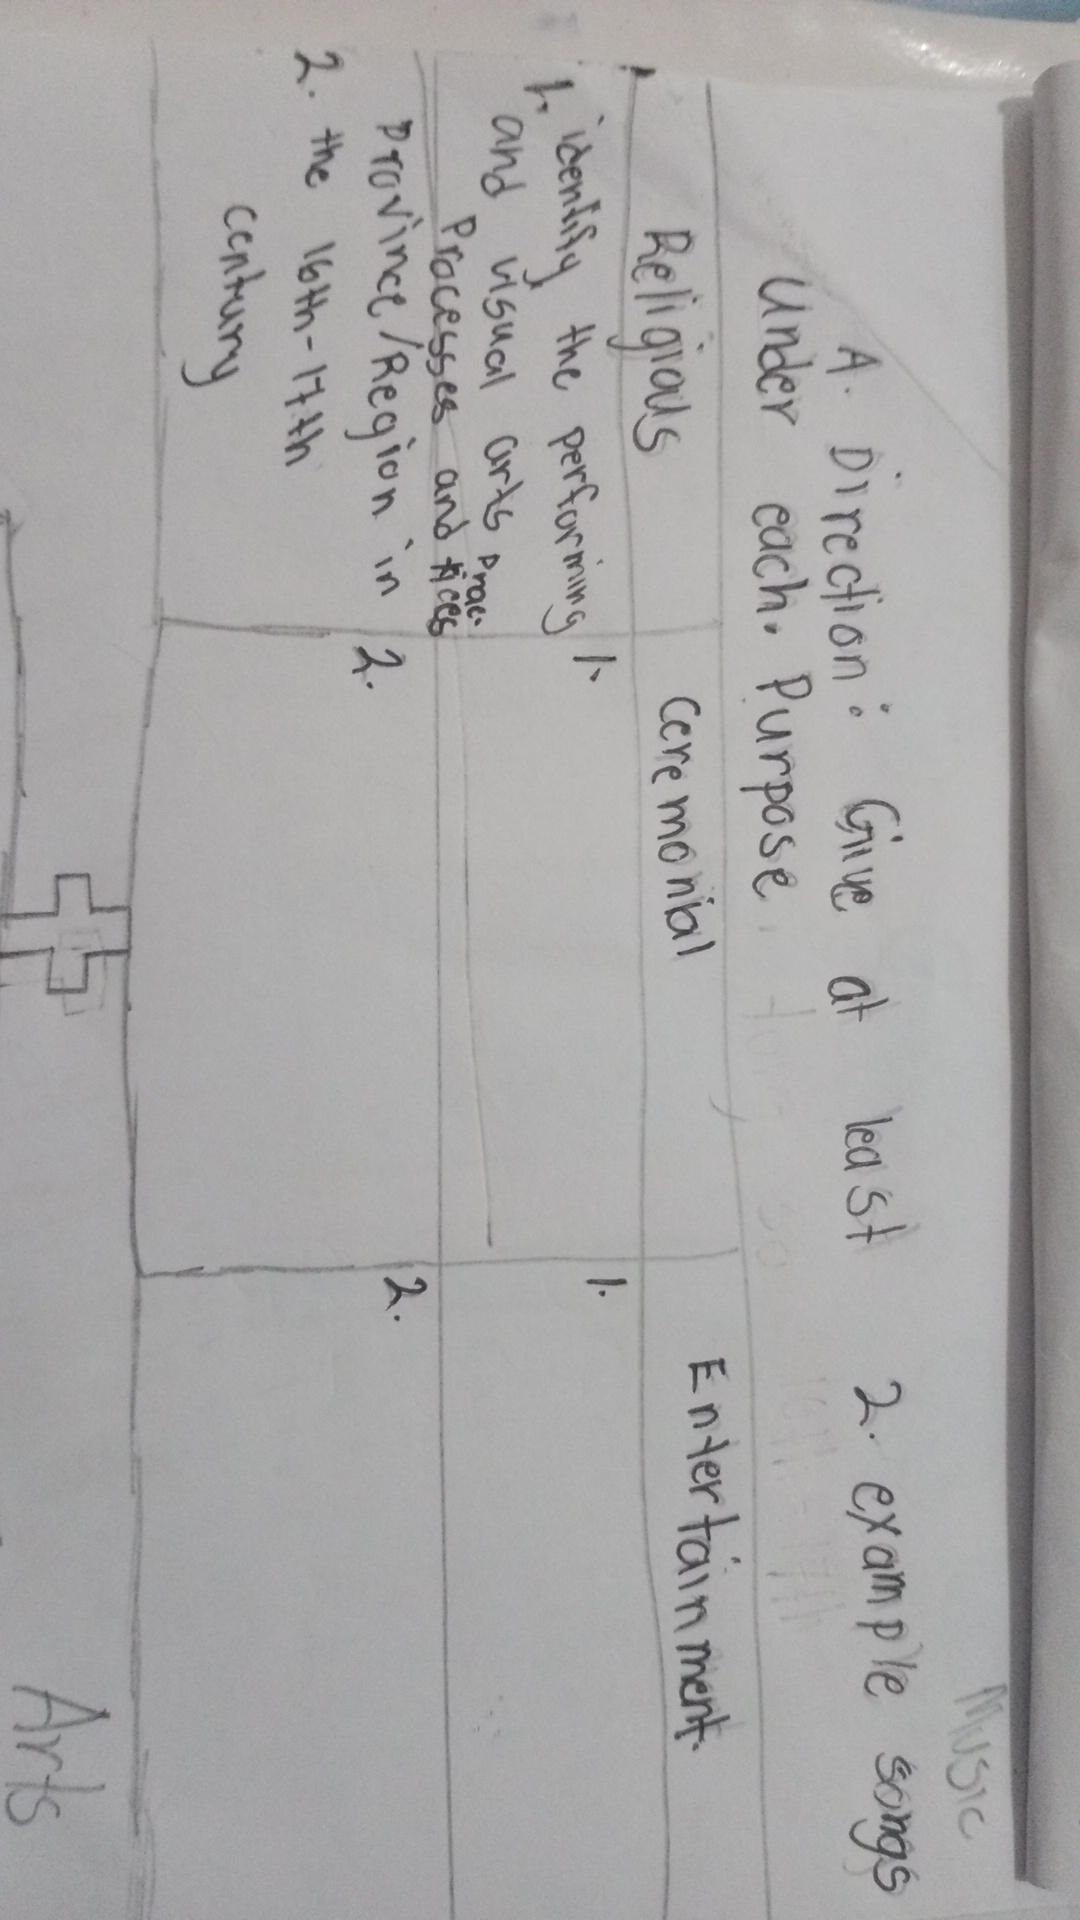 Music
A. Direction: Give at least 2. example songs
Under each. Purpose.
Religious
Ceremonial
Entertainment.
1. identify the performing
and visual arts prac-
Processes and tices
Province/Region in
2. the 16th-17th
century
1.
2.
1.
2.
Arts